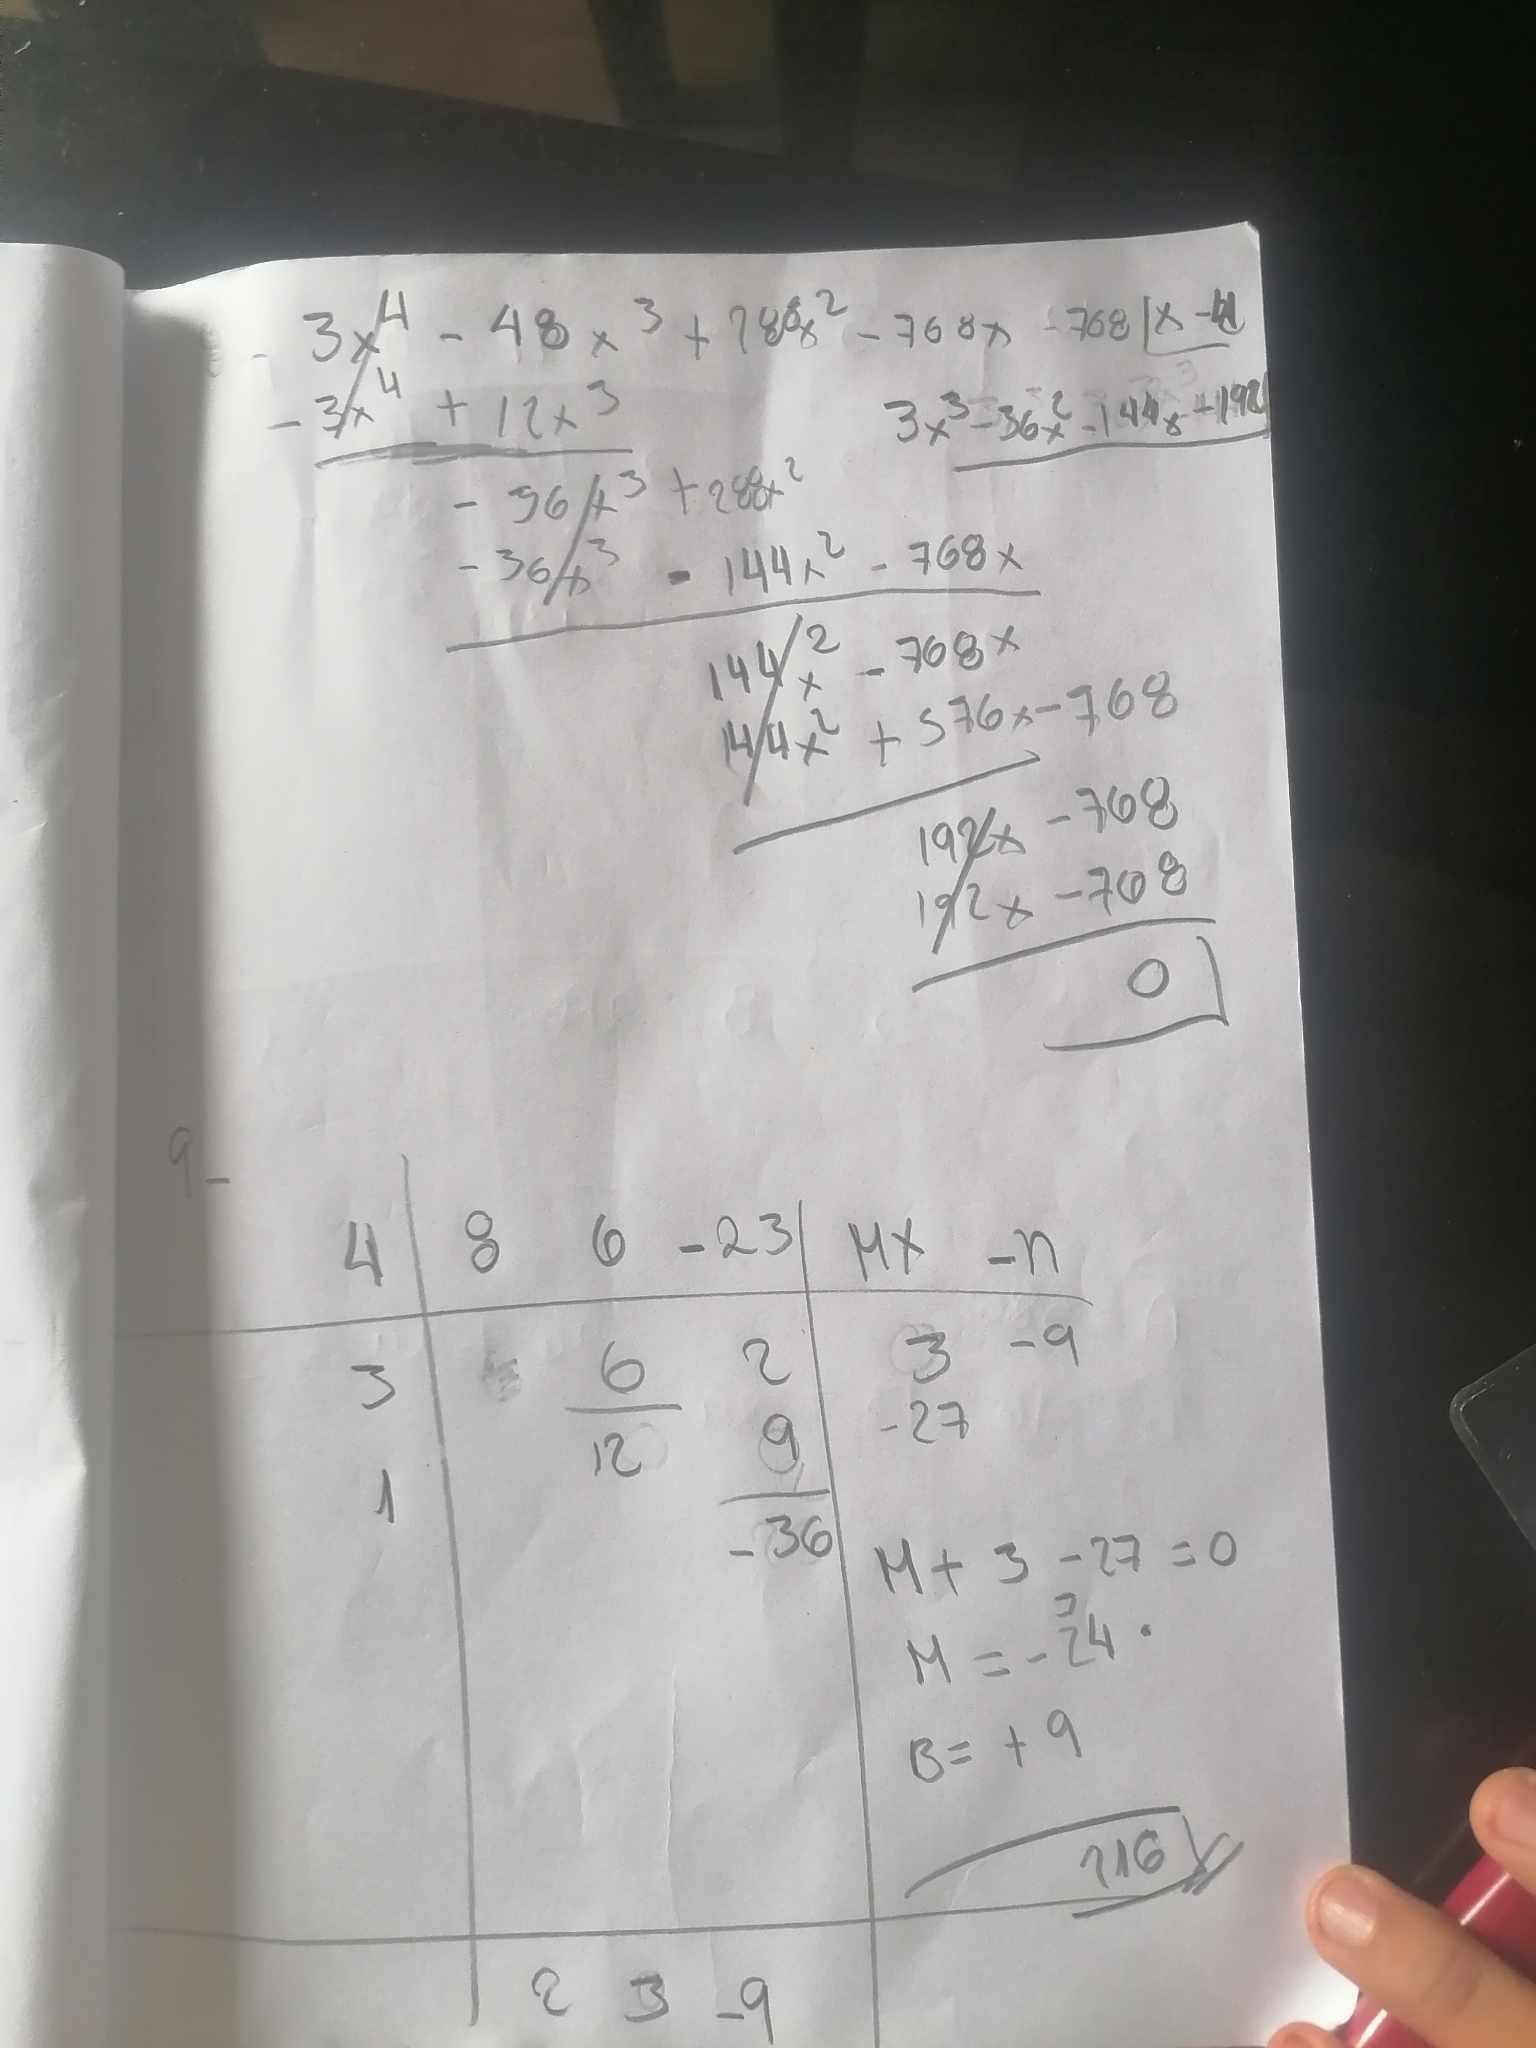 - 3x⁴ - 48x³ + 288x² - 768x - 768 | x - 4
- 3x⁴ + 12x³ 3x³ - 36x² - 144x + 192
- 36x³ + 288x²
- 36x³ - 144x² - 768x
144x² - 768x
144x² + 576x - 768
192x - 768
192x - 768
0
9-
4 8 6 -23 MX -n
3 6 2 3 -9
12 9 -27
1
-36
M + 3 - 27 = 0
M = -24
B = + 9
216
2 3 -9